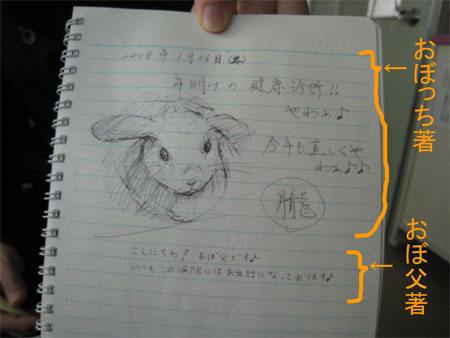 2008年1月26日(土)
年明けの健康診断!!
やわぁ♪
今年も宜しくや
わぁ♪♪
朧
こんにちわ! おぼ父です♪
いつもこの病院にはお世話になっております♪
←おぼっち著
←おぼ父著